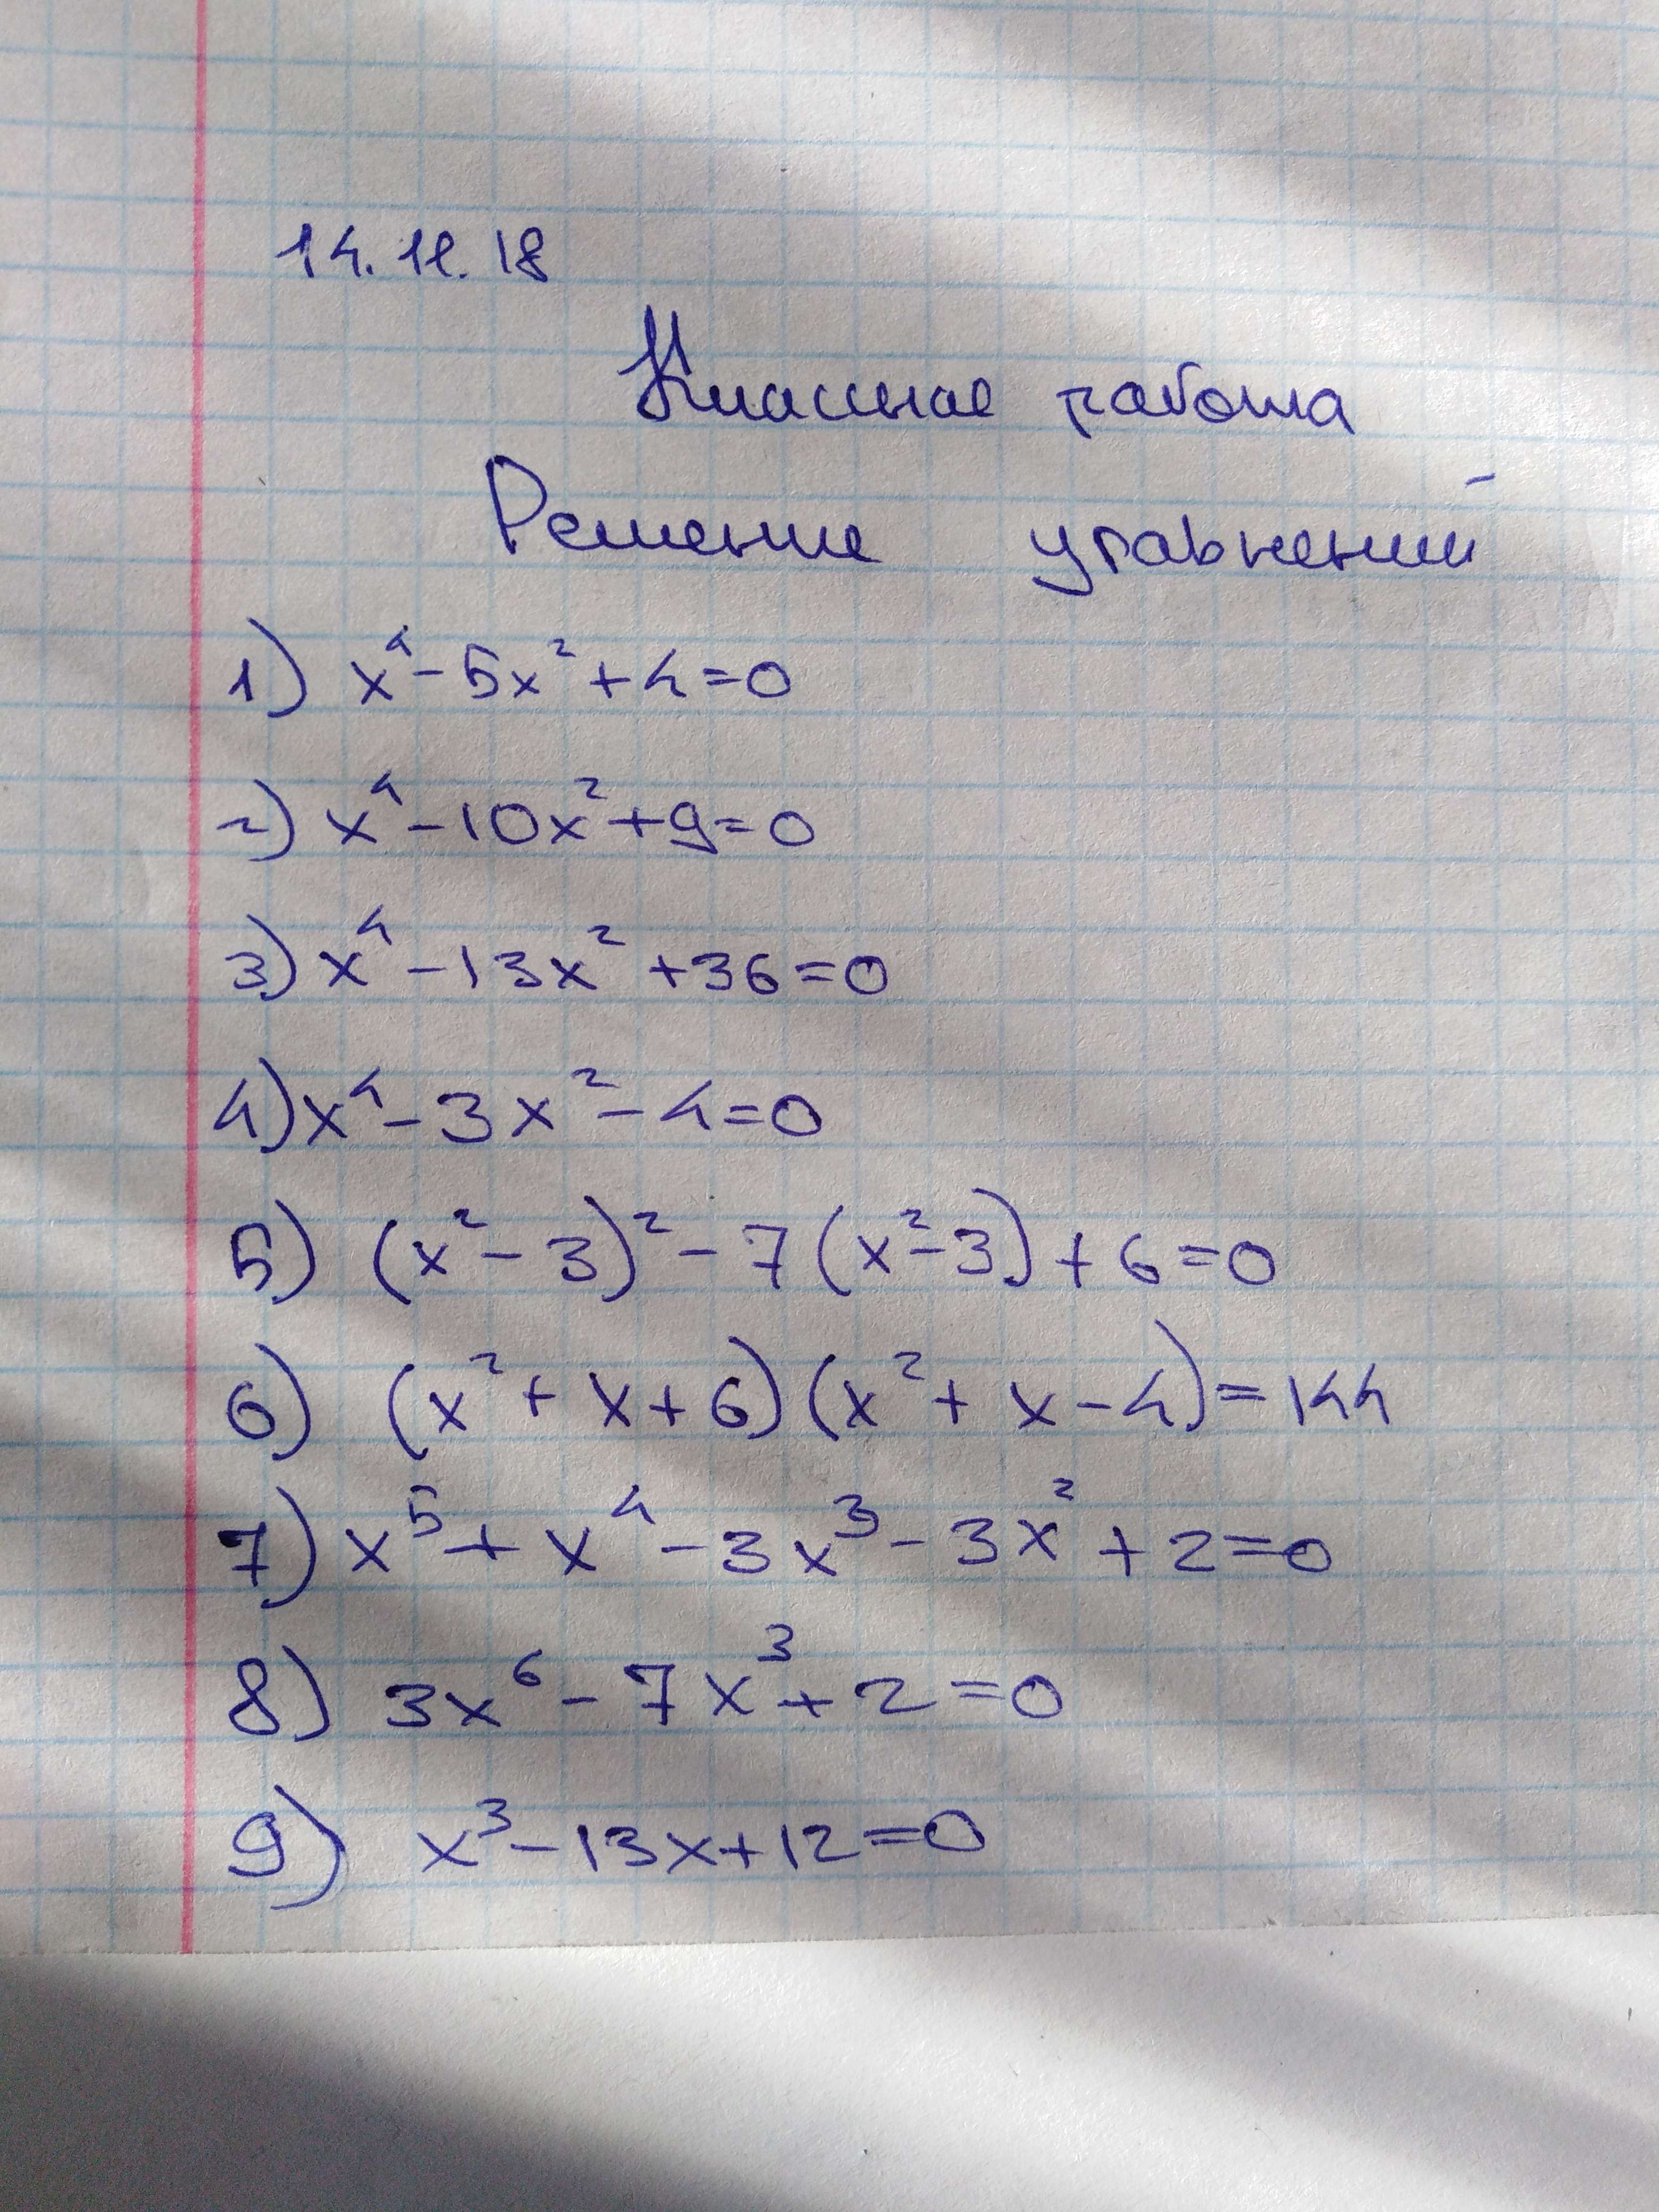 14.11.18
Классная работа
Решение уравнений
1) x⁴-5x²+4=0
2) x⁴-10x²+9=0
3) x⁴-13x²+36=0
4) x⁴-3x²-4=0
5) (x²-3)²-7(x²-3)+6=0
6) (x²+x+6)(x²+x-4)=144
7) x⁵+x⁴-3x³-3x²+2=0
8) 3x⁶-7x³+2=0
9) x³-13x+12=0